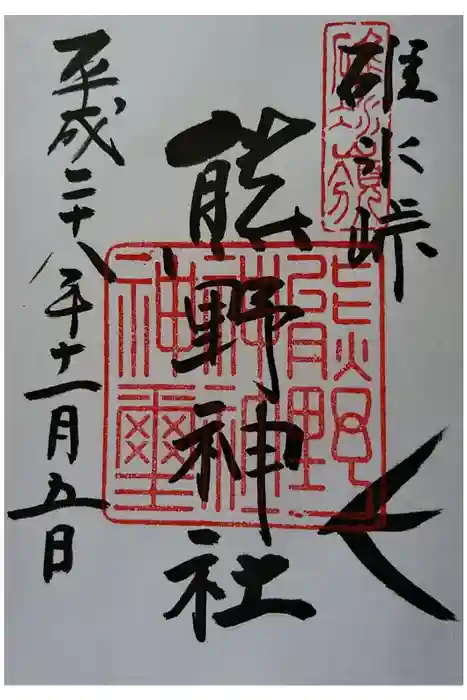 碓氷峠
熊野神社
平成二十八年十一月五日
碓氷嶺
熊野神社神璽